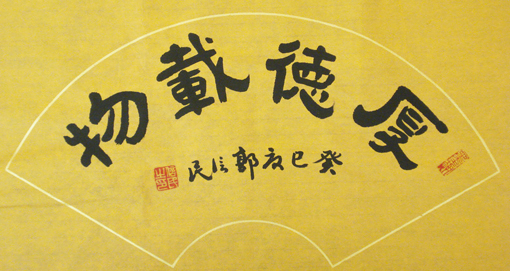 厚德載物
癸巳夏郭信民